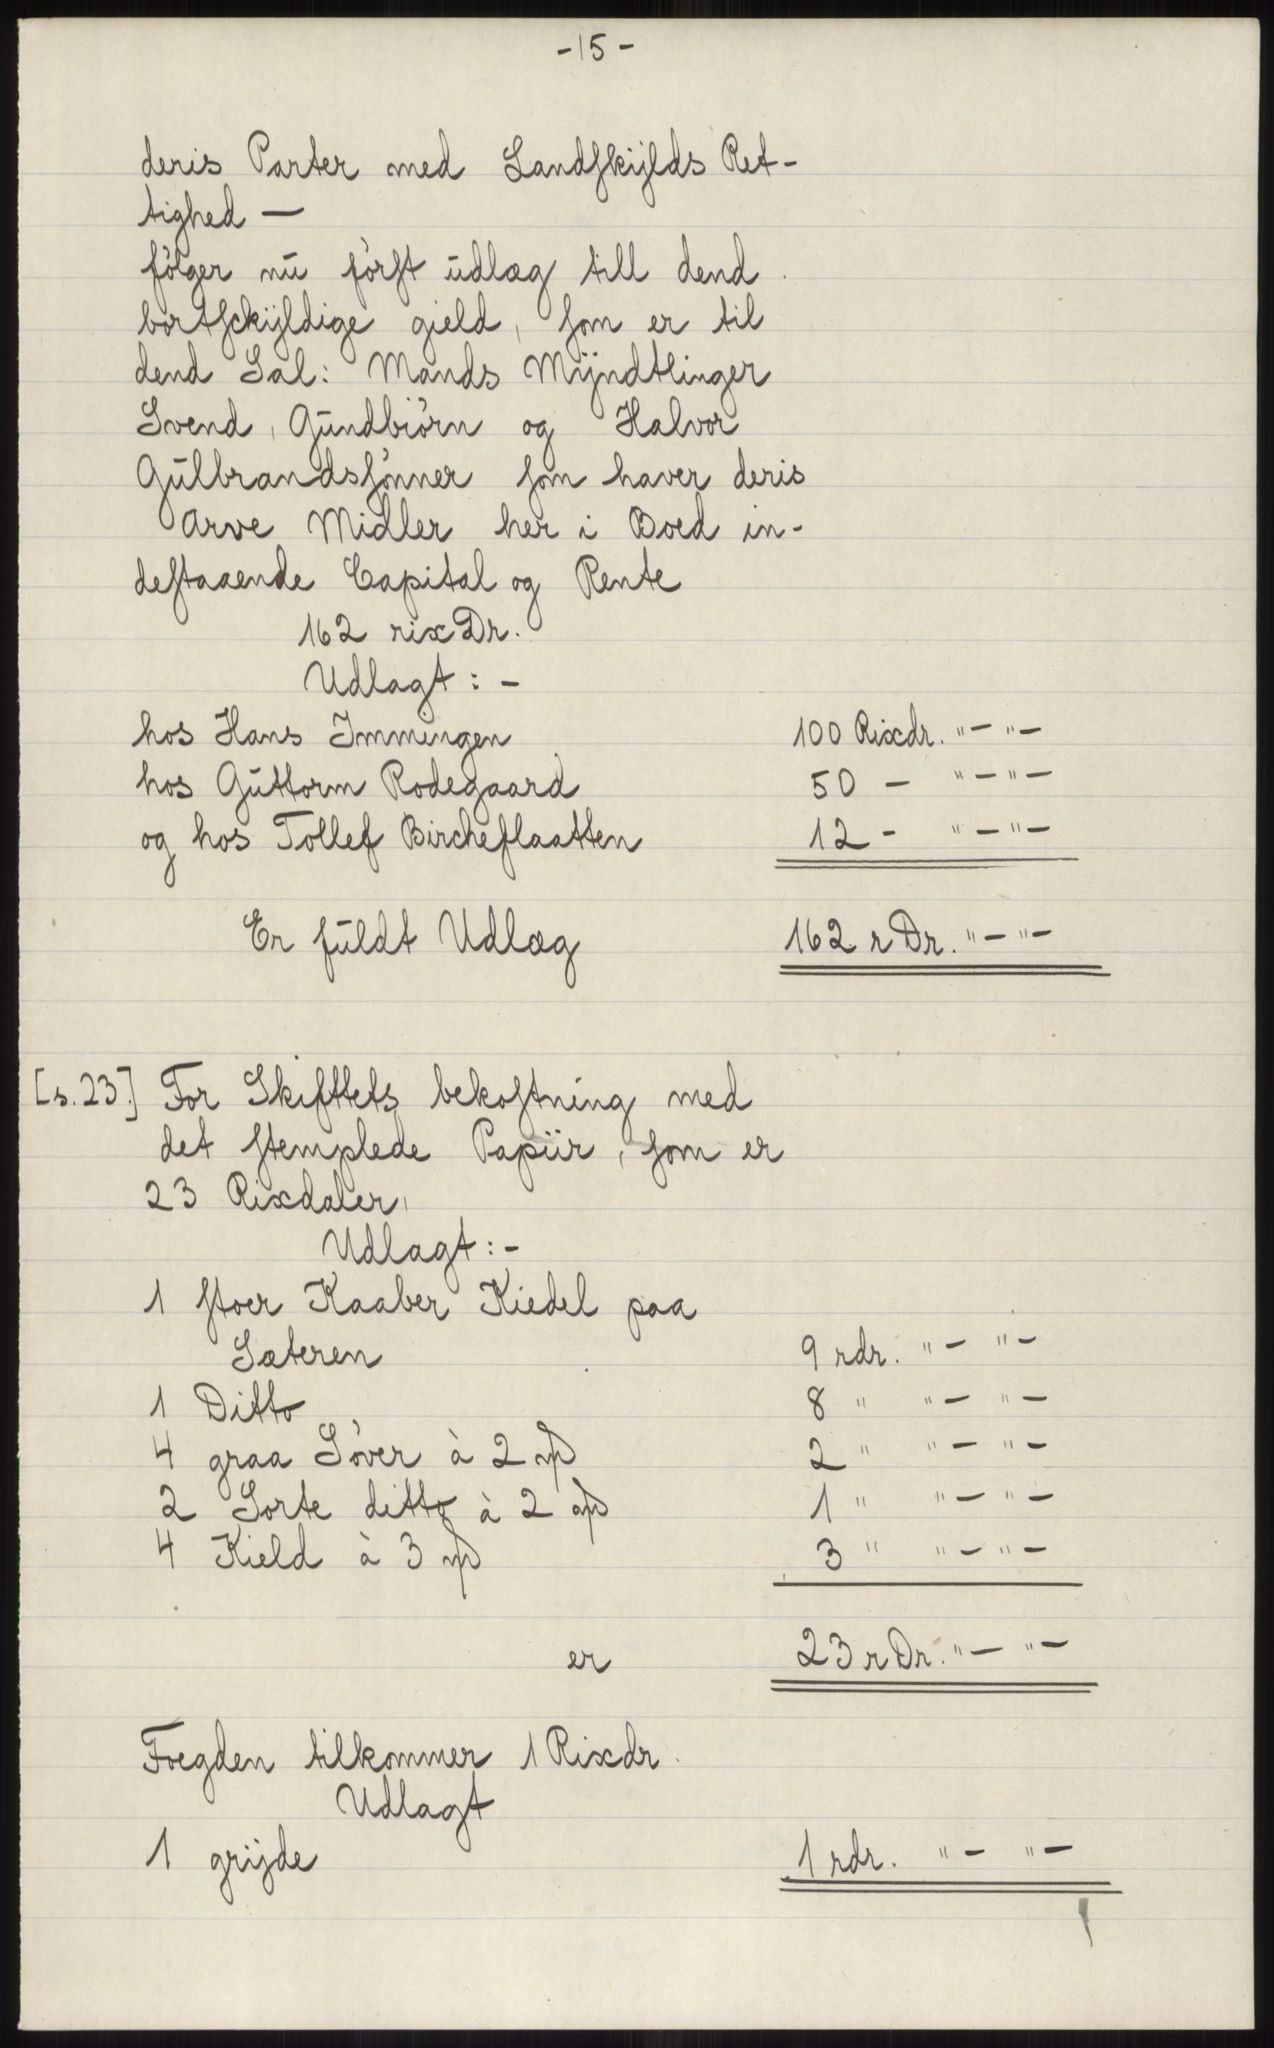 -15-
deris Parter med Landſkÿlds Ret-
tighed —
følger nu førſt udlæg till dend
bortſckÿldige gield, ſom er til
dend Sal: Mands Mÿndtlinger
Svend, Gundbiørn og Halvor
Gulbrandsſønner ſom haver deris
Arve Midler her i Boed in-
deſtaaende Capital og Rente
162 rixDr.
Udlagt: -
hos Hans Immingen 100 Rixdr. "-"-
hos Guttorm Rodegaard 50 - "-"-
og hos Tollef Bircheflaatten 12 - "-"-
Er fuldt Udlæg 162 r Dr. "-"-
[s. 23.] For Skifttets bekoſtning med
det ſtemplede Papiir, ſom er
23 Rixdaler,
Udlagt: -
1 ſtoer Kaaber Kiedel paa
Sæteren 9 rdr. "- "-
1 Ditto 8 " "- "-
4 graa Søver à 2 ꝳ 2 " "- "-
2 Sorte ditto à 2 ꝳ 1 " "-"-
4 Kield à 3 ꝳ 3 " "-"-
er 23 r Dr. "- "-
Foegden tilkommer 1 Rixdr.
Udlagt
1 grijde 1 rdr. "- "-